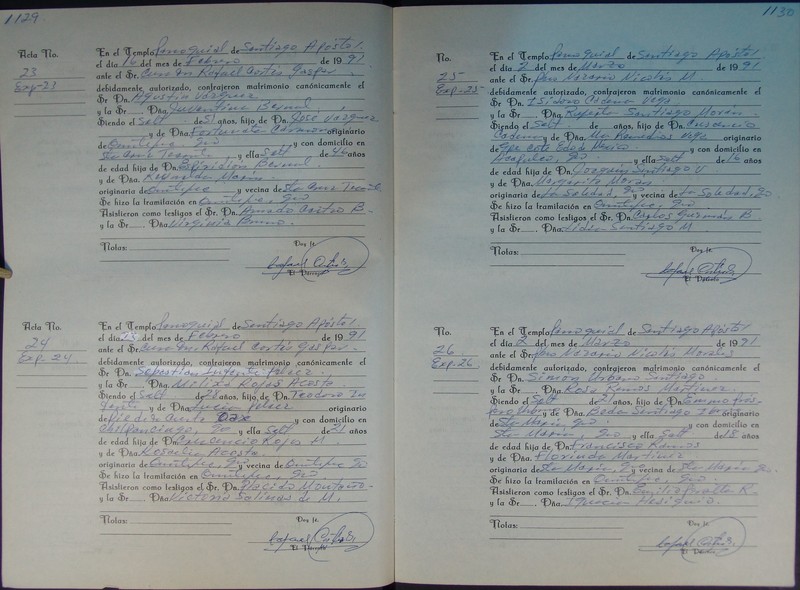 1129.
Acta No.
23
Exp-23
En el Templo Parroquial de Santiago Apóstol
el día 16 del mes de Febrero de 1991
ante el Sr. Cura Dn. Rafael Cortés Gaspar
debidamente autorizado, contrajeron matrimonio canónicamente el
Sr. Dn. Agustín Vázquez
y la Sr. Dña. Juventina Bernal
Siendo el Solt de 51 años, hijo de Dn. José Vázquez
y de Dña. Fortunata originario
de Ometepec, Gro y con domicilio
y ella Solt de 46 años
de edad hija de Dn. Espiridión Bernal
y de Dña. Marín
originaria de Ometepec y vecina de
Se hizo la tramitación en Ometepec, Gro
Asistieron como testigos el Sr. Dn. Amado Castro B-
y la Sr. Dña. Virginia Bruno
Notas:
Doy fe.
Rafael Cortés
El Párroco
Acta No.
24
Exp. 24
En el Templo Parroquial de Santiago Apóstol
el día 23 del mes de Febrero de 1991
ante el Sr. Cura Dn. Rafael Cortés Gaspar
debidamente autorizado, contrajeron matrimonio canónicamente el
Sr. Dn. Sebastián Infante Pérez
y la Sr. Dña. Melida Rojas Acosta
Siendo el Solt años, hijo de Dn. Teodoro In
fante y de Dña. Lucía Pérez originario
de Pie de la Cuesta Oax y con domicilio
Chilpancingo, Gro y ella Solt de 21 años
de edad hija de Dn. Rojas M.
y de Dña. Rosalía Acosta
originaria de Ometepec, G y vecina de Ometepec Go
Se hizo la tramitación en Ometepec, Gro
Asistieron como testigos el Sr. Dn. Plácido Montaño-
y la Sr. Dña. Victoria Salinas de M.
Notas:
Doy fe.
Rafael Cortés
El Párroco
1130
No.
25-
Exp-25
En el Templo Parroquial de Santiago Apóstol
el día 2 del mes de Marzo de 1991
ante el Sr. Pbro Nazario Nicolás M.
debidamente autorizado, contrajeron matrimonio canónicamente el
Sr. Dn. Isidro Cadena Vega
y la Sr. Dña. Rufina Santiago Morán
Siendo el Solt de años, hijo de Dn.
Cadena y de Dña. Ma Remedios Vega originario
de México y con domicilio
Acapulco, Gro y ella Solt de 16 años
de edad hija de Dn. Joaquín Santiago V
y de Dña. Margarita Morán
originaria de La Soledad, Gro y vecina de La Soledad, Go
Se hizo la tramitación en Ometepec, Gro
Asistieron como testigos el Sr. Dn. Carlos Guzmán B
y la Sr. Dña. Lidia Santiago M
Notas:
Doy fe.
Rafael Cortés
El Párroco
No.
26
Exp.26
En el Templo Parroquial de Santiago Apóstol
el día 2 del mes de Marzo de 1991
ante el Sr. Pbro Nazario Nicolás Morales
debidamente autorizado, contrajeron matrimonio canónicamente el
Sr. Dn. Simón Urbano Santiago
y la Sr. Dña. Ramos Martínez
Siendo el Solt de años, hijo de Dn.
y de Dña. Beda Santiago originario
de Sta María, Gro y con domicilio
Sta María, Gro y ella Solt de 18 años
de edad hija de Dn. Francisco Ramos
y de Dña. Florinda Martínez
originaria de Sta María, G y vecina de Sta María Go
Se hizo la tramitación en Ometepec, Gro
Asistieron como testigos el Sr. Dn. Emilia Peralta R.
y la Sr. Dña. Ignacia
Notas:
Doy fe.
Rafael Cortés
El Párroco